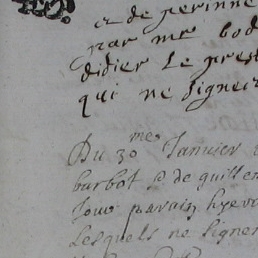 & de perinne
par me bod
didier Le prest
qui ne signe
Du 30me Januier
barbot & de guillem
parain hyero
Lesquels ne signe